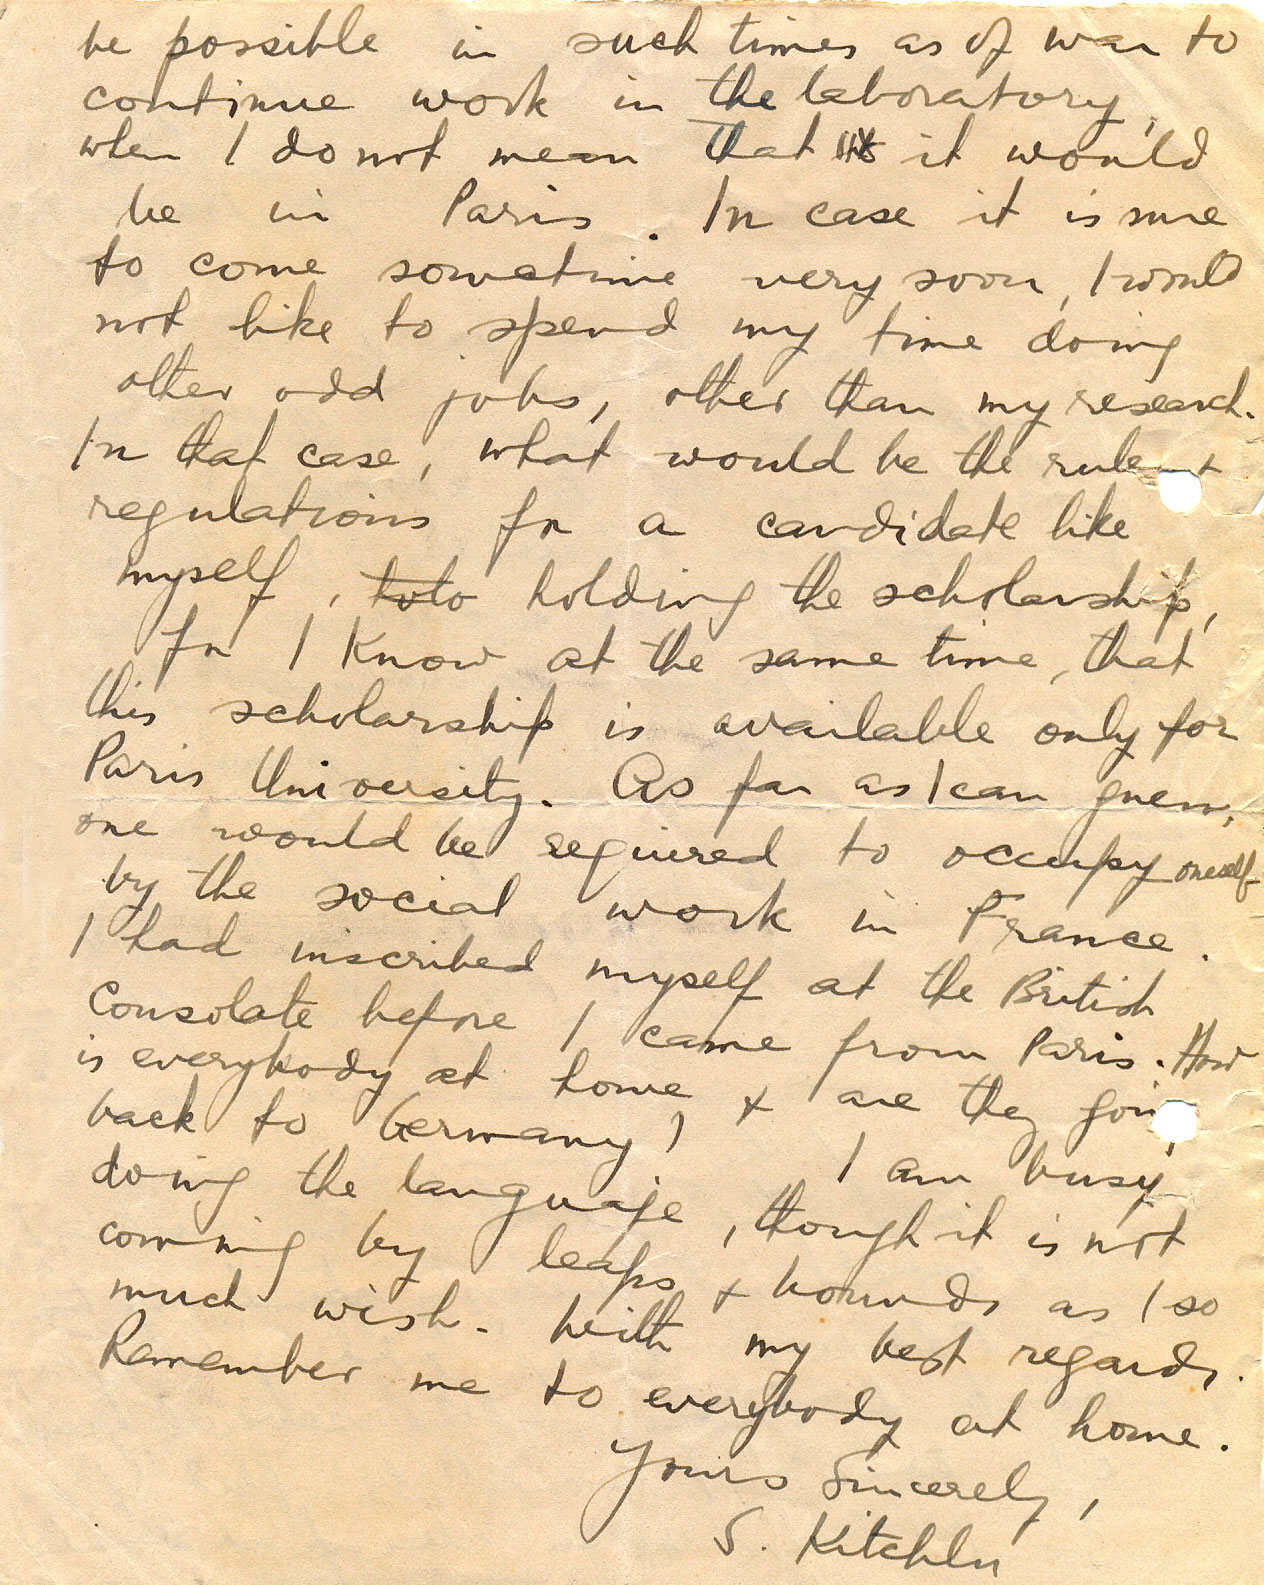 be possible in such times as of war to
continue work in the laboratory,
when I do not mean that it would
be in Paris. In case it is sure
to come sometime very soon, I would
not like to spend my time doing
other odd jobs, other than my research.
In that case, what would be the rules +
regulations for a candidate like
myself, holding the scholarship,
for I know at the same time, that
this scholarship is available only for
Paris University. As far as I can guess,
one would be required to occupy oneself
by the social work in France.
I had inscribed myself at the British
Consolate before I came from Paris. How
is everybody at home + are they going
back to Germany? I am busy
doing the language, though it is not
coming by leaps + bounds as I so
much wish. With my best regards.
Remember me to everybody at home.
Yours Sincerely,
S. Kitchlu